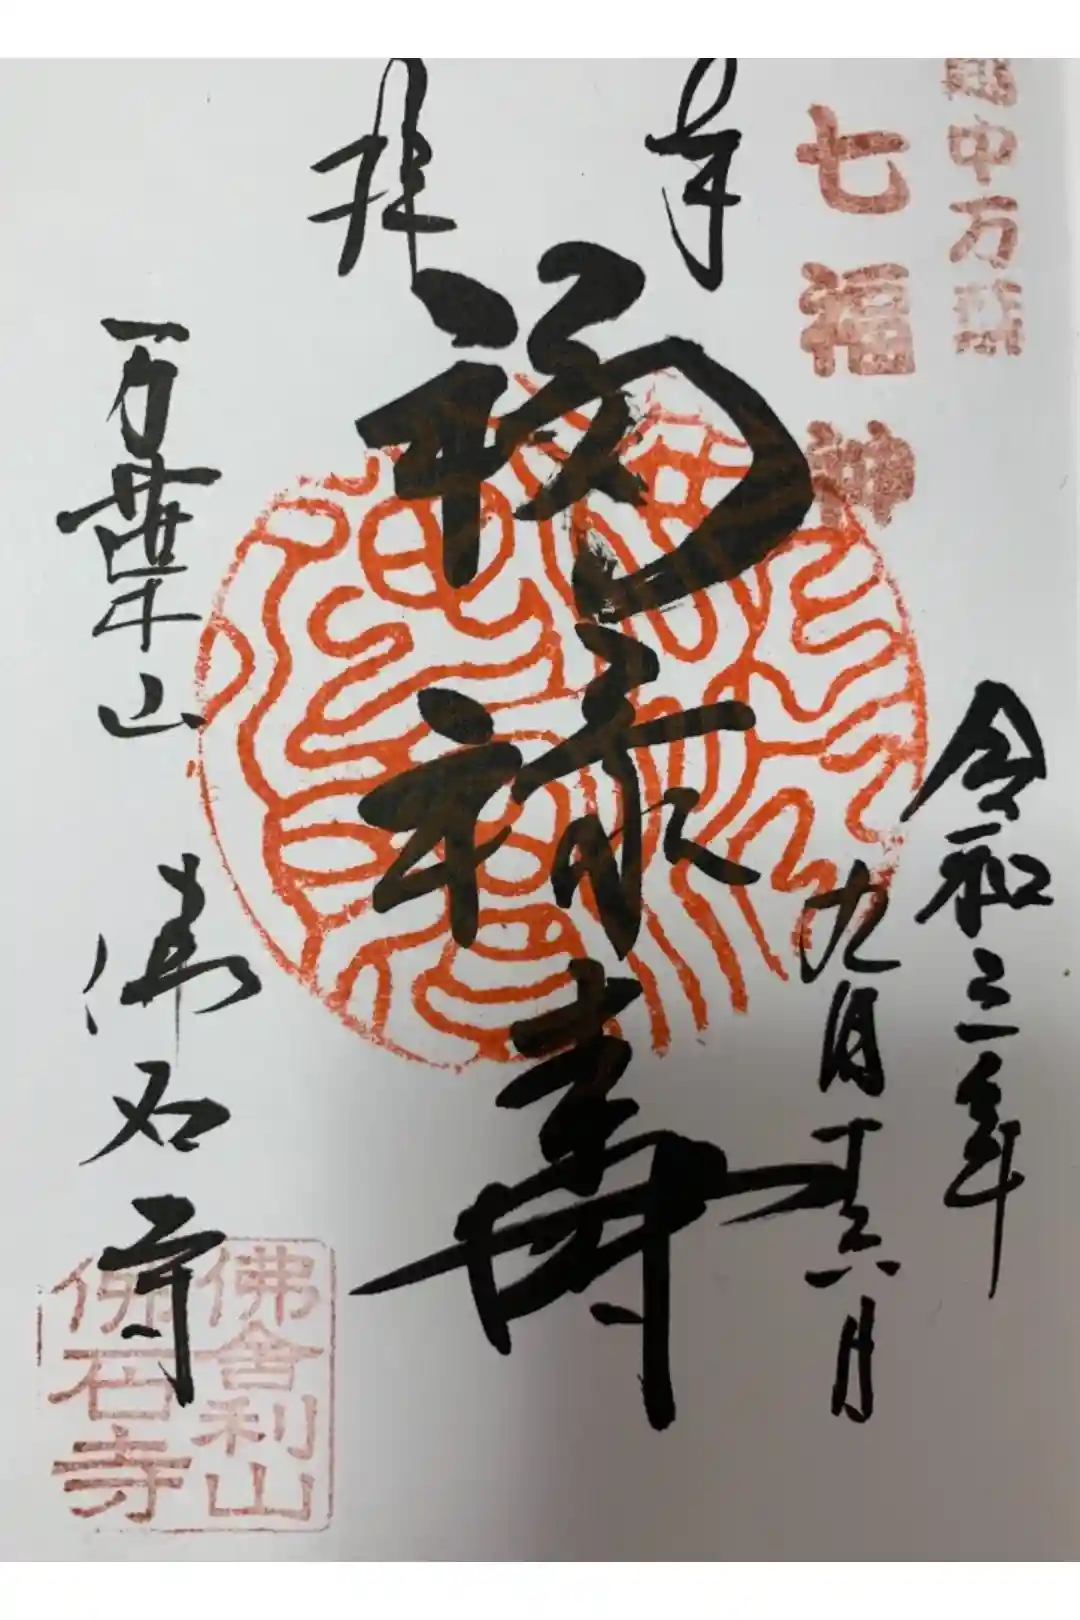 越中万葉
七福神
奉拝
令和三年
九月十六日
福禄寿
万葉山 佛石寺
佛舎利山
佛石寺